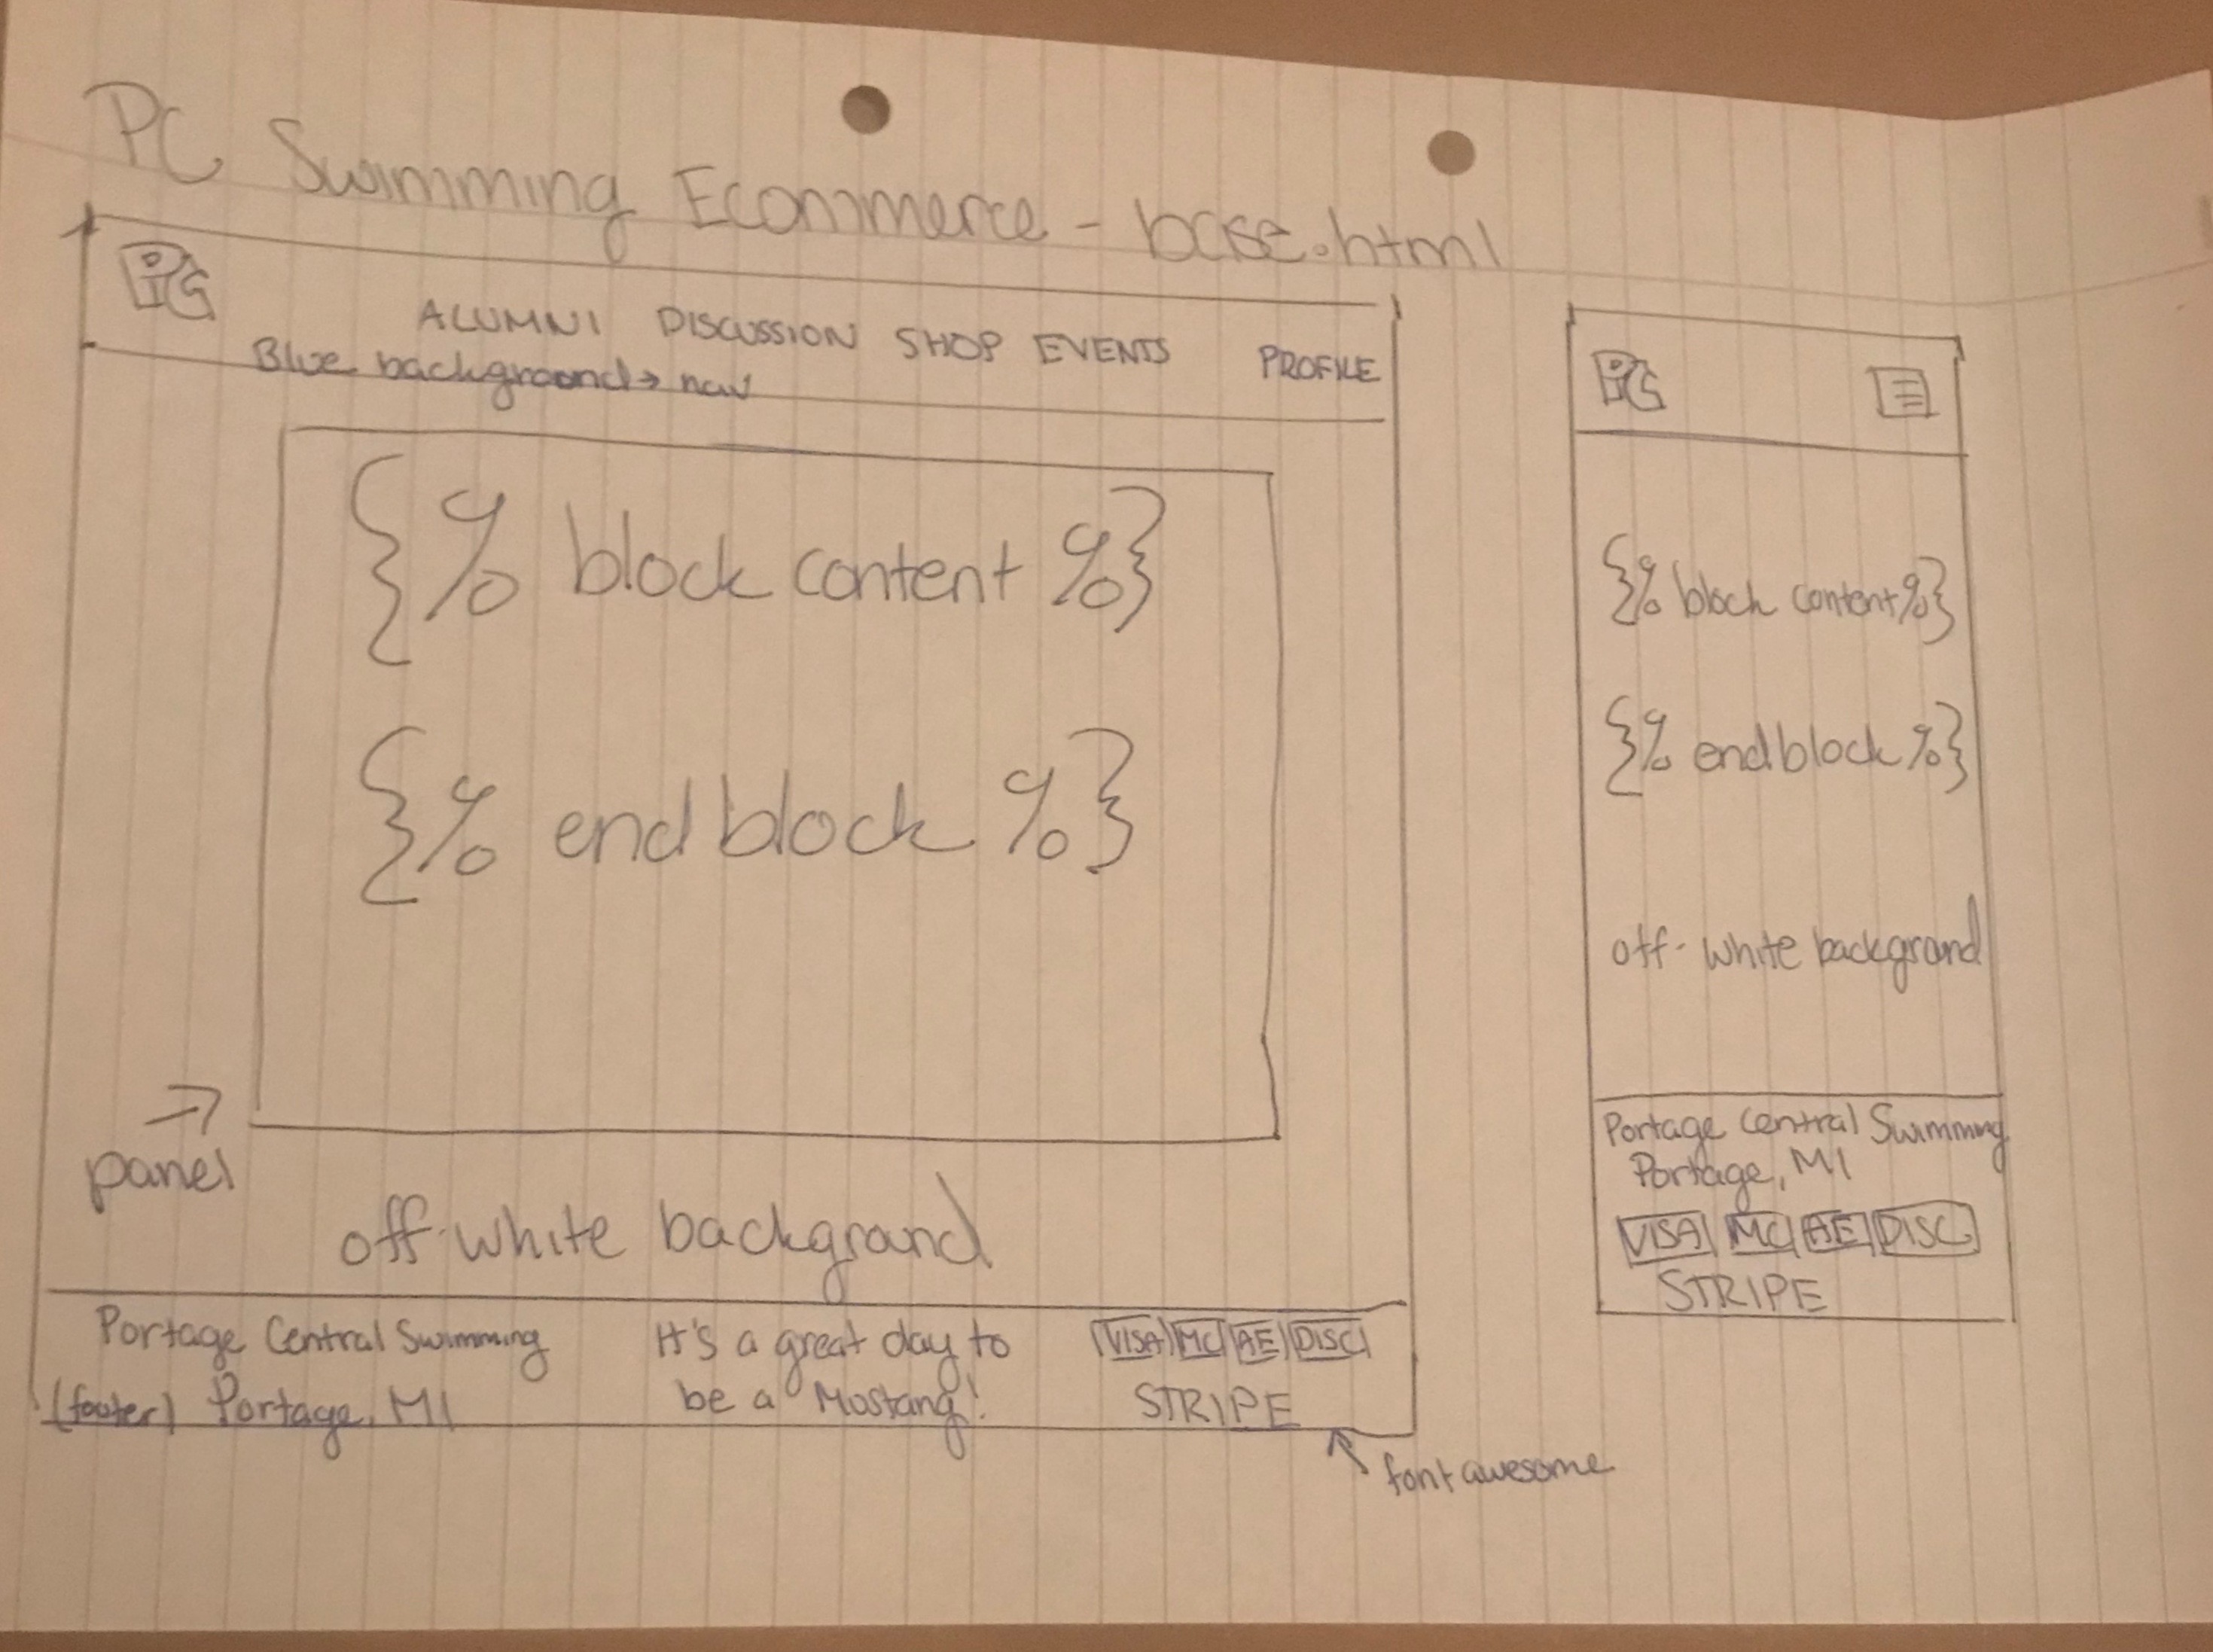 PC Swimming Ecommerce - base.html
PC
ALUMNI DISCUSSION SHOP EVENTS PROFILE
Blue background → nav
{% block content %}
{% endblock %}
panel
off-white backgrand
Portage Central Swimming
(footer) Portage, MI
It's a great day to
be a Mustang!
VISA MC AE DISC
STRIPE
font awesome
PC
{% block content %}
{% endblock %}
off-white backgrand
Portage Central Swimming
Portage, MI
VISA MC AE DISC
STRIPE